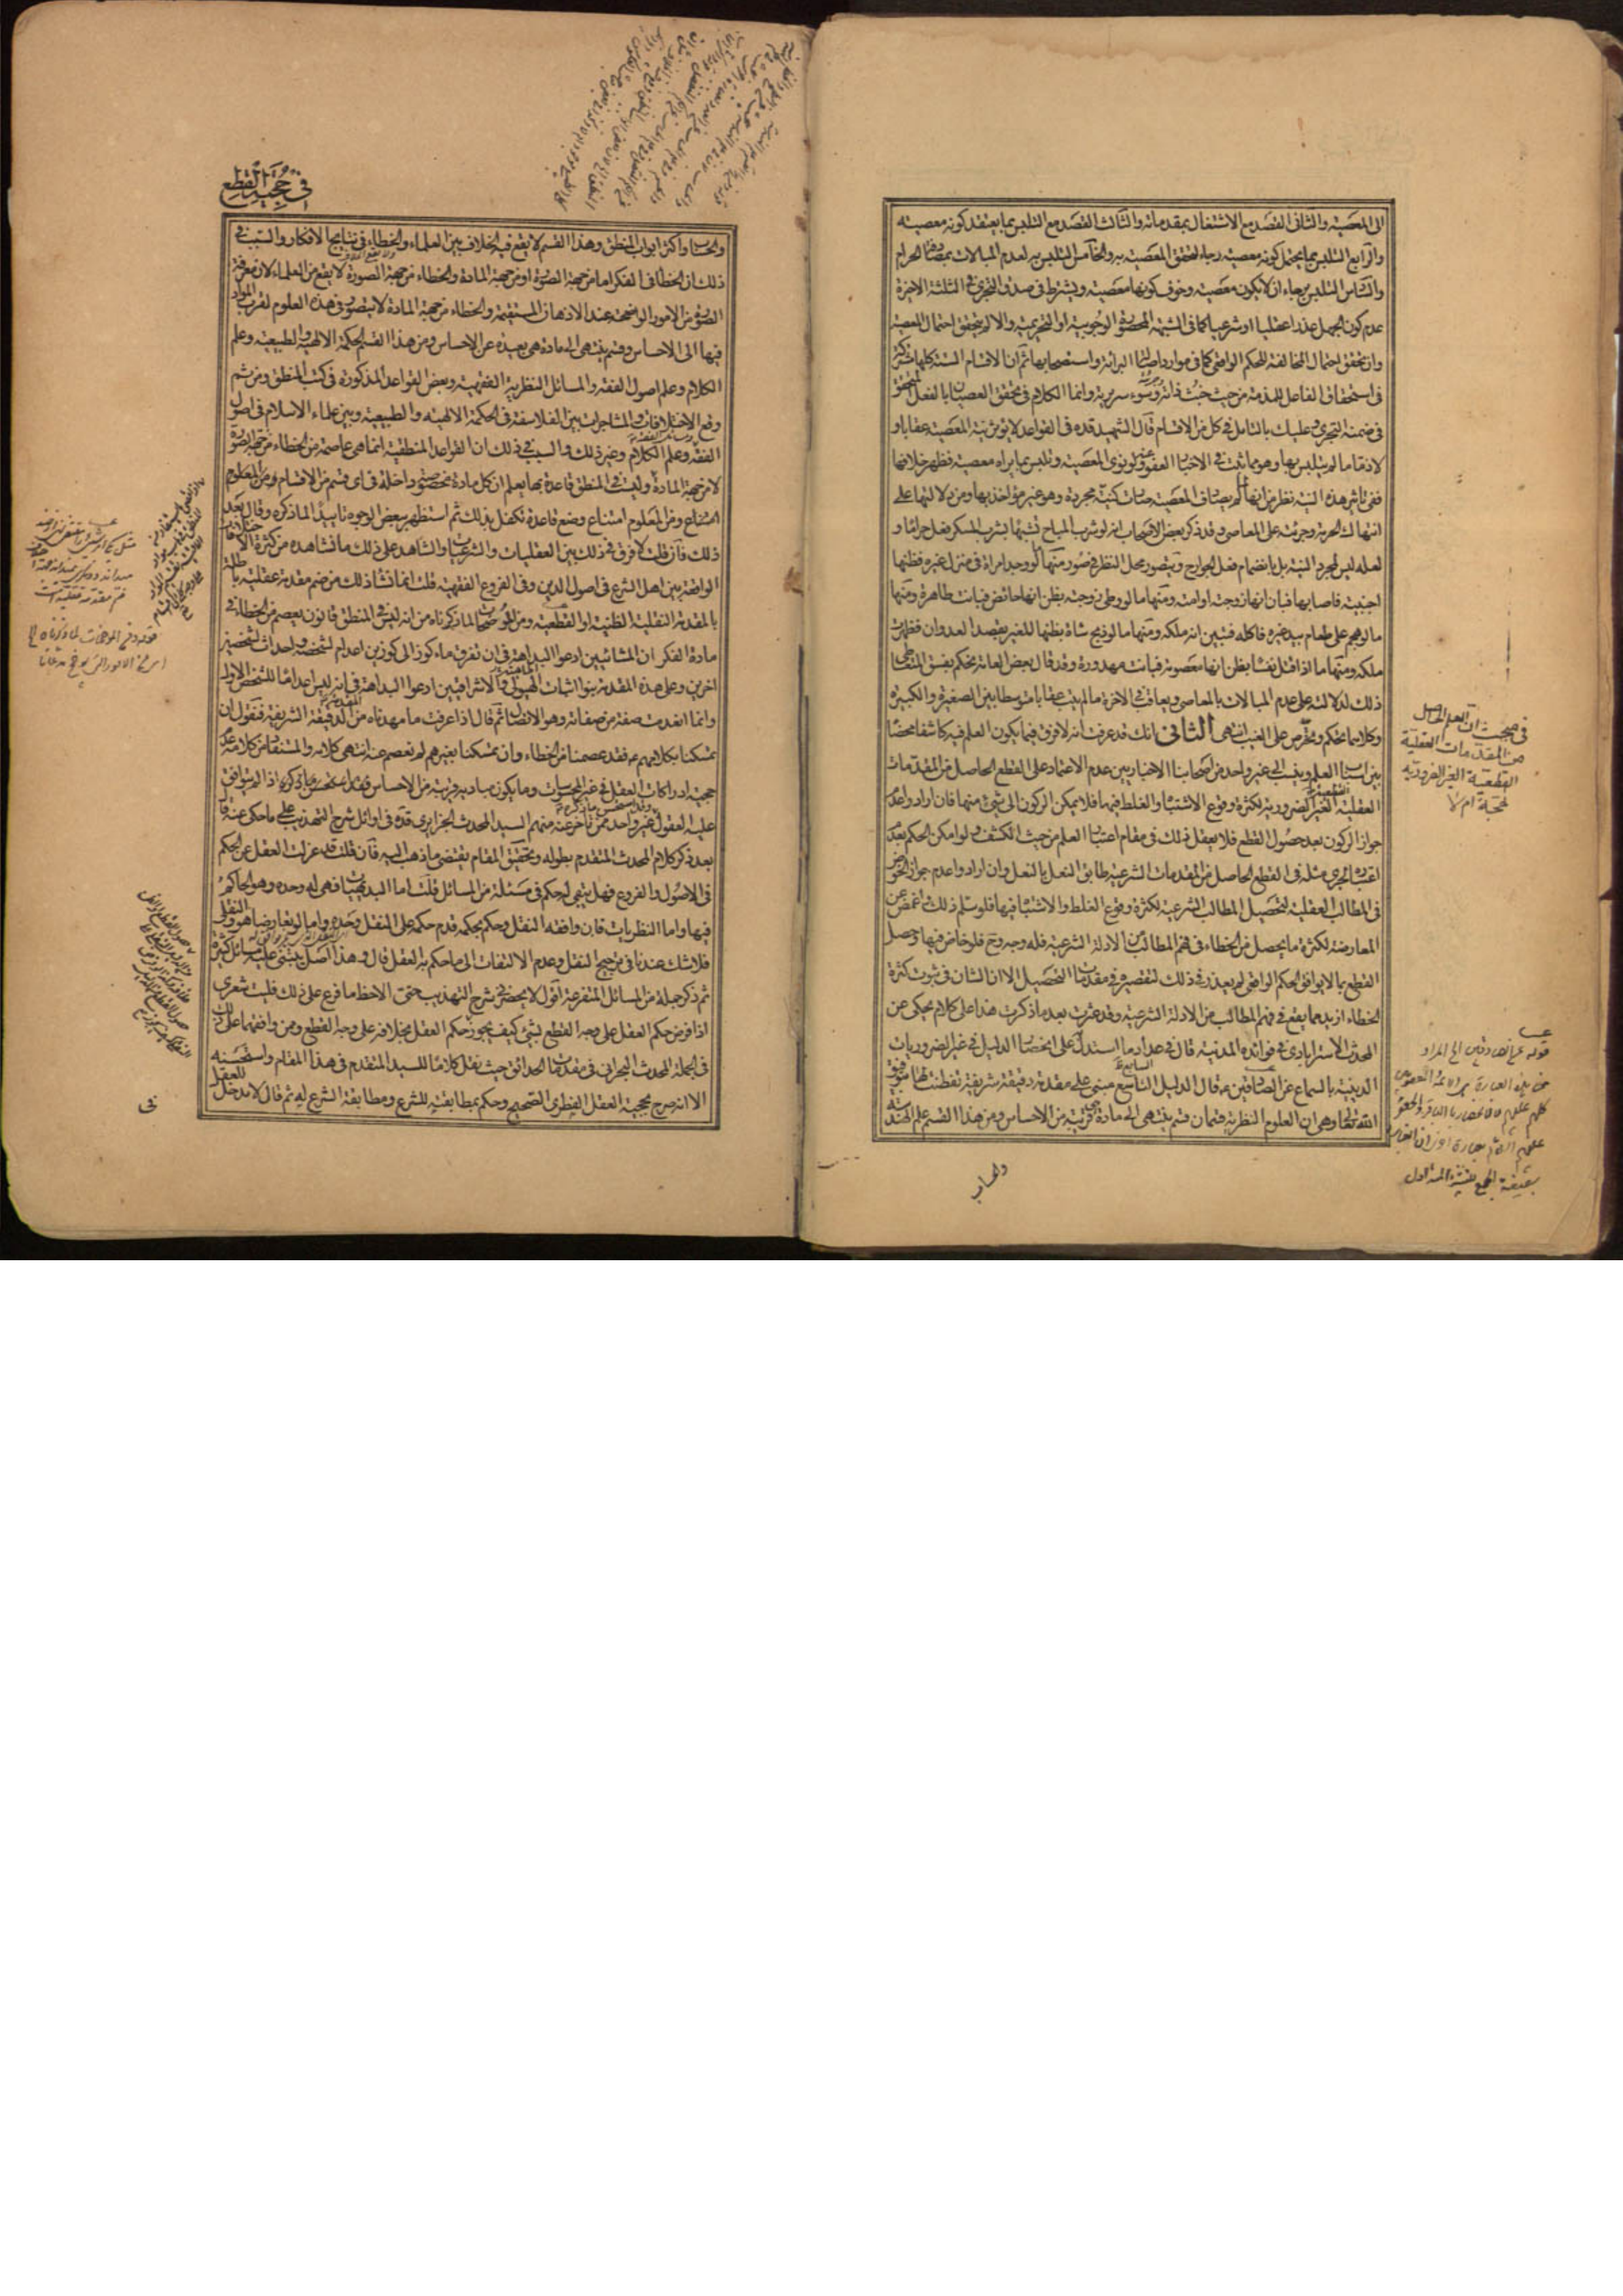 الى المعصية والثانى القصد مع الاشتغال بمقدماته والثالث القصد مع التلبس بما يعتقد كونه معصيته
والرابع التلبس بما يحتمل كونه معصية رجاء لتحقق المعصية به والخامس التلبس به لعدم المبالات بمصادفة الحرام
والسادس التلبس برجاء ان لا يكون معصية وخوف كونها معصية ويشترط فى صدق التجرى فى الثلثة الاخيرة
عدم كون الجهل عذرا عقليا او شرعيا كما فى الشبهة المحصورة الوجوبية او التحريمية والا لم يتحقق احتمال المعصية
وان تحقق احتمال المخالفة للحكم الواقعى كما فى موارد اصالة البرائة واستصحابها ثم ان الاقسام الستة كلها مشتركة
فى استحقاق الفاعل للمذمة من حيث خبث ذاته وسوء سريرته وانما الكلام فى تحقق العصيان بالفعل المتحقق
فى ضمنه التجرى وعليك بالتامل فى كل من الاقسام قال الشهيد قده فى القواعد لا يؤثر نية المعصية عقابا و
لا ذما ما لم يتلبس بها وهو مما ثبت فى الاخبار العفو عنه ولو نوى المعصية وتلبس بما يراه معصية فظهر خلافها
ففى تاثير هذه النية نظر من انها لم يصادف المعصية صارت كنية مجردة وهو غير مؤاخذ بها ومن دلالتها على
انتهاك الحرمة وجرئته على المعاصى وقد ذكر بعض الاصحاب انه لو شرب المباح تشبها بشرب المسكر فعل حراما و
لعله ليس لمجرد النية بل بانضمام فعل الجوارح ويتصور محل النظر فى صور منها لو وجد امراة فى منزل غيره فظنها
اجنبية فاصابها فبان انها زوجته او امته ومنها ما لو وطئ زوجته بظن انها حائض فبانت طاهرة ومنها
ما لو هجم على طعام بيد غيره فاكله فتبين انه ملكه ومنها ما لو ذبح شاة بظنها للغير بقصد العدوان فظهرت
ملكه ومنها ما اذا قتل نفسا بظن انها معصومة فبانت مهدورة وقد قال بعض العامة يحكم بفسق المتعاطى
ذلك لدلالته على عدم المبالات بالمعاصى ويعاقب فى الاخرة ما لم يتب عقابا متوسطا بين الصغيرة والكبيرة
وكلاهما تحكم وتخرص على الغيب انتهى الثانى انك قد عرفت انه لا فرق فيما يكون العلم فيه كاشفا محضا
بين اسباب العلم وينسب الى غير واحد من اصحابنا الاخباريين عدم الاعتماد على القطع الحاصل من المقدمات
العقلية القطعية الغير الضرورية لكثرة وقوع الاشتباه والغلط فيها فلا يمكن الركون الى شئ منها فان ارادوا عدم
جواز الركون بعد حصول القطع فلا يعقل ذلك فى مقام اعتبار العلم من حيث الكشف ولو امكن الحكم بعدم
اعتباره لجرى مثله فى القطع الحاصل من المقدمات الشرعية طابق النعل بالنعل وان ارادوا عدم جواز الخوض
فى المطالب العقلية لتحصيل المطالب الشرعية لكثرة وقوع الغلط والاشتباه فيها فلو سلم ذلك واغمض عن
المعارضة لكثرة ما يحصل من الخطاء فى فهم المطالب من الادلة الشرعية فله وجه وح فلو خاض فيها وحصل
القطع بما لا يوافق الحكم الواقعى لم يعذر فى ذلك لتقصيره فى مقدمات التحصيل الا ان الشان فى ثبوت كثرة
الخطاء ازيد مما يقع فى فهم المطالب من الادلة الشرعية وقد عثرت بعد ما ذكرت هذا على كلام يحكى عن
المحدث الاسترابادى فى فوائده المدنية قال فى عداد ما استدل على انحصار الدليل فى غير الضروريات
الدينية بالسماع عن الصادقين ع قال الدليل التاسع مبنى على مقدمة دقيقة شريفة تفطنت لها بتوفيق
الله تعالى وهى ان العلوم النظرية قسمان قسم ينتهى الى مادة هى قريبة من الاحساس ومن هذا القسم علم الهندسة
والحساب
فى مبحث ان العلم الحاصل
من المقدمات العقلية
القطعية الغير الضرورية
حجة ام لا
فى حجية القطع
والحساب واكثر ابواب المنطق وهذا القسم لا يقع فيه الخلاف بين العلماء والخطاء فى نتايج الافكار والسبب فى
ذلك ان الخطاء فى الفكر اما من جهة الصورة او من جهة المادة والخطاء من جهة الصورة لا يقع من العلماء لان معرفة
الصورة من الامور الواضحة عند الاذهان المستقيمة والخطاء من جهة المادة لا يتصور فى هذه العلوم لقرب المواد
فيها الى الاحساس وقسم ينتهى الى مادة هى بعيدة عن الاحساس ومن هذا القسم الحكمة الالهية والطبيعية وعلم
الكلام وعلم اصول الفقه والمسائل النظرية الفقهية وبعض القواعد المذكورة فى كتب المنطق ومن ثم
وقع الاختلافات والمشاجرات بين الفلاسفة فى الحكمة الالهية والطبيعية وبين علماء الاسلام فى اصول
الفقه وعلم الكلام وغير ذلك والسبب فى ذلك ان القواعد المنطقية انما هى عاصمة من الخطاء من جهة الصورة
لا من جهة المادة وليست فى المنطق قاعدة بها يعلم ان كل مادة مخصوصة داخلة فى اى قسم من الاقسام ومن المعلوم
امتناع وضع قاعدة تكفل بذلك ثم استظهر ببعض الوجوه تاييدا لما ذكره وقال بعد
ذلك فان قلت لا فرق فى ذلك بين العقليات والشرعيات والشاهد على ذلك ما نشاهد من كثرة الاختلافات
الواقعة بين اهل الشرع فى اصول الدين وفى الفروع الفقهية قلت انما نشا ذلك من ضم مقدمة عقلية باطلة
بالمقدمة النقلية الظنية او القطعية ومن الموضحات لما ذكرناه من انه ليس فى المنطق قانون يعصم من الخطاء فى
مادة الفكر ان المشائيين ادعوا البداهة فى ان تفريق ماء كوز الى كوزين اعدام لشخصه واحداث لشخصين
اخرين وعلى هذه المقدمة بنوا اثبات الهيولى والاشراقيين ادعوا البداهة فى انه ليس اعداما للشخص الاول
وانما انعدمت صفة من صفاته وهو الاتصال ثم قال اذا عرفت ما مهدناه من الدقيقة الشريفة فنقول ان
تمسكنا بكلامهم ع فقد عصمنا من الخطاء وان تمسكنا بغيرهم لم نعصم عنه انتهى كلامه والمستفاد من كلامه عدم
حجية ادراكات العقل فى غير المحسوسات وما يكون مباديه قريبة من الاحساس وقد استحسن ما ذكره اذا لم يتوافق
عليه العقول غير واحد ممن تاخر عنه منهم السيد المحدث الجزايرى قده فى اوائل شرح التهذيب على ما حكى عنه قال
بعد ذكر كلام المحدث المتقدم بطوله وتحقيق المقام يقتضى ما ذهب اليه فان قلت قد عزلت العقل عن الحكم
فى الاصول والفروع فهل يبقى له حكم فى مسئلة من المسائل قلت اما البديهيات فهى له وحده وهو الحاكم
فيها واما النظريات فان وافقه النقل وحكم بحكمه قدم حكمه على النقل وحده واما لو تعارض هو والنقلى
فلا شك عندنا فى ترجيح النقل وعدم الالتفات الى ما حكم به العقل قال وهذا اصل يبتنى عليه مسائل كثيرة
ثم ذكر جملة من المسائل المتفرعة اقول لا يحضرنى شرح التهذيب حتى الاحظ ما فرع على ذلك فليت شعرى
اذا فرض حكم العقل على وجه القطع بشئ كيف يجوز حكم العقل بخلافه على وجه القطع وممن وافقهما على ذلك
فى الجملة المحدث البحرانى فى مقدمات الحدائق حيث نقل كلاما للسيد المتقدم فى هذا المقام واستحسنه
الا انه صرح بحجية العقل الفطرى الصحيح وحكم بمطابقته للشرع ومطابقة الشرع له ثم قال لا مدخل للعقل
فى